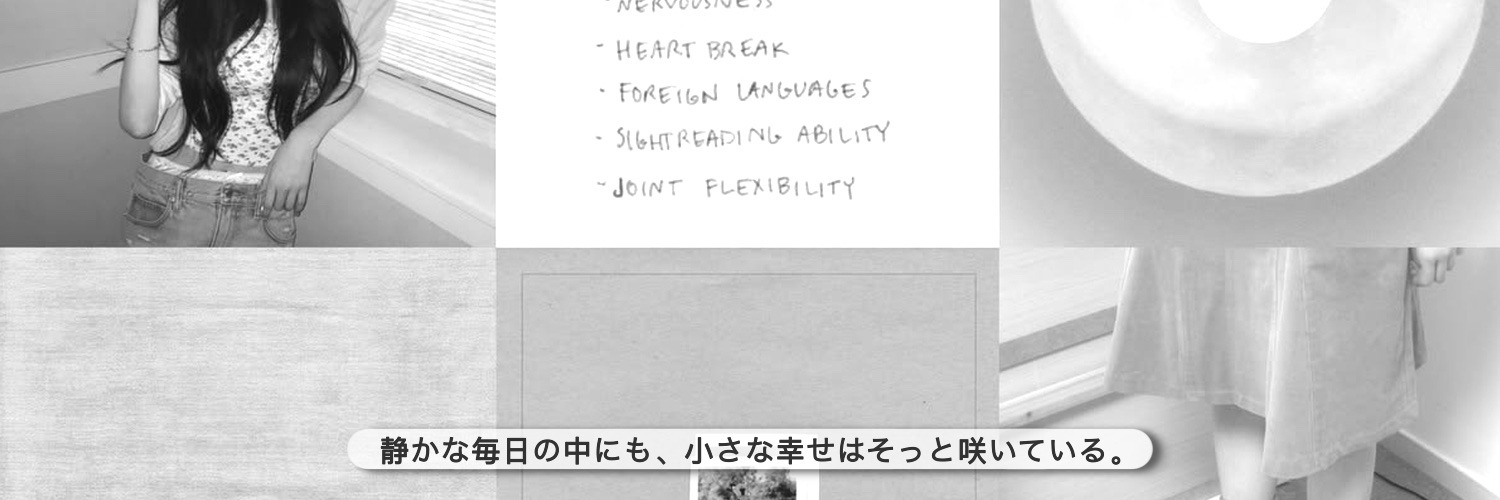 - NERVOUSNESS
- HEART BREAK
- FOREIGN LANGUAGES
- SIGHTREADING ABILITY
- JOINT FLEXIBILITY
静かな毎日の中にも、小さな幸せはそっと咲いている。